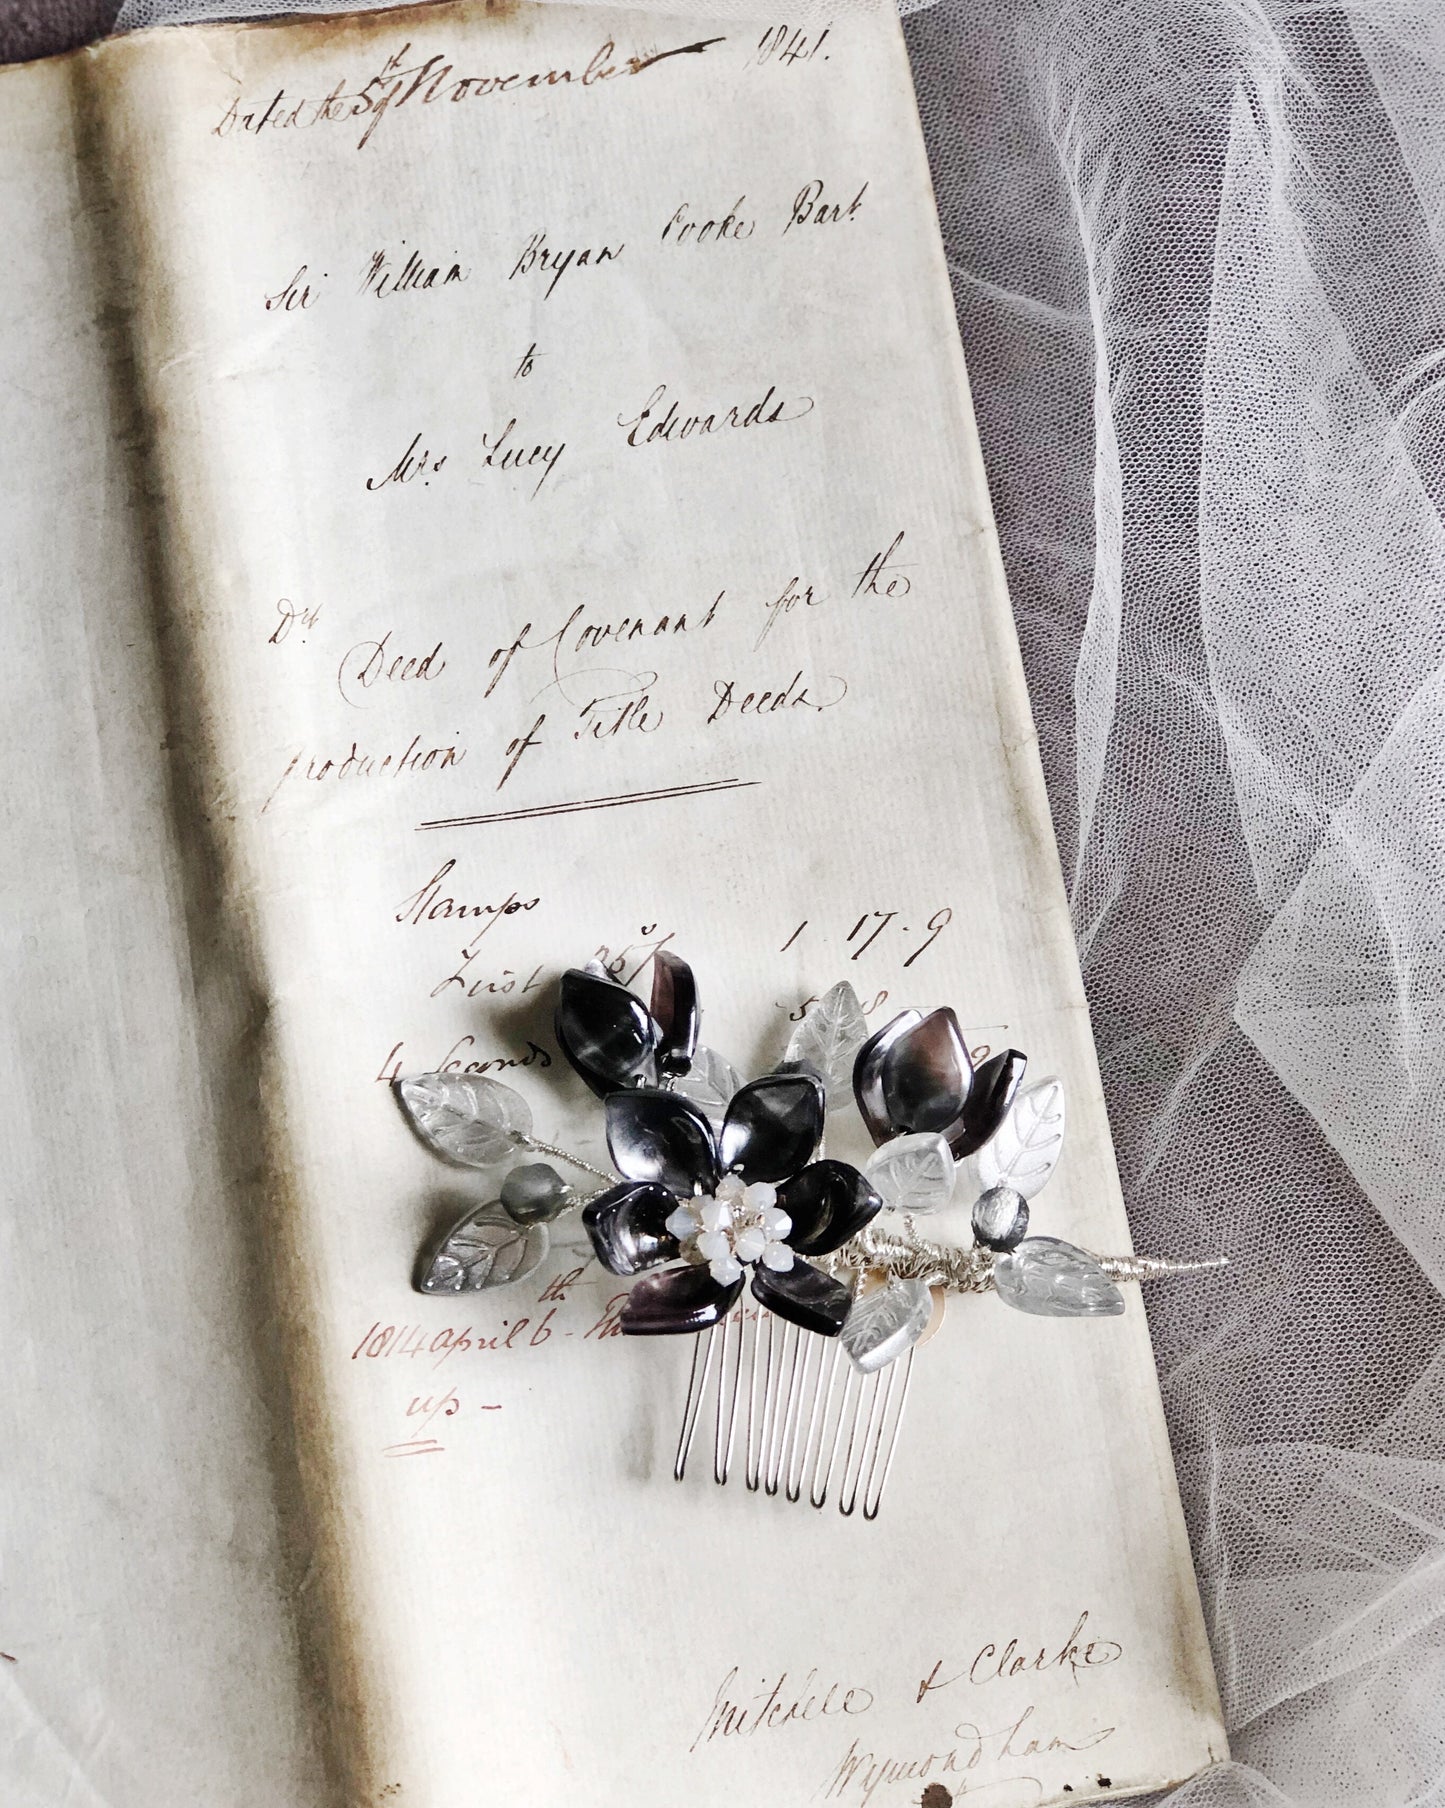 Dated the 5th of November 1841.
Sir William Bryan Cooke Bart.
to
Mrs. Lucy Edwards
Dft.
Deed of Covenant for the
production of Title Deeds.
Stamps
First 1 . 17 . 9
4
9
1814 april 6th -
up -
Mitchell & Clarke
Wymondham